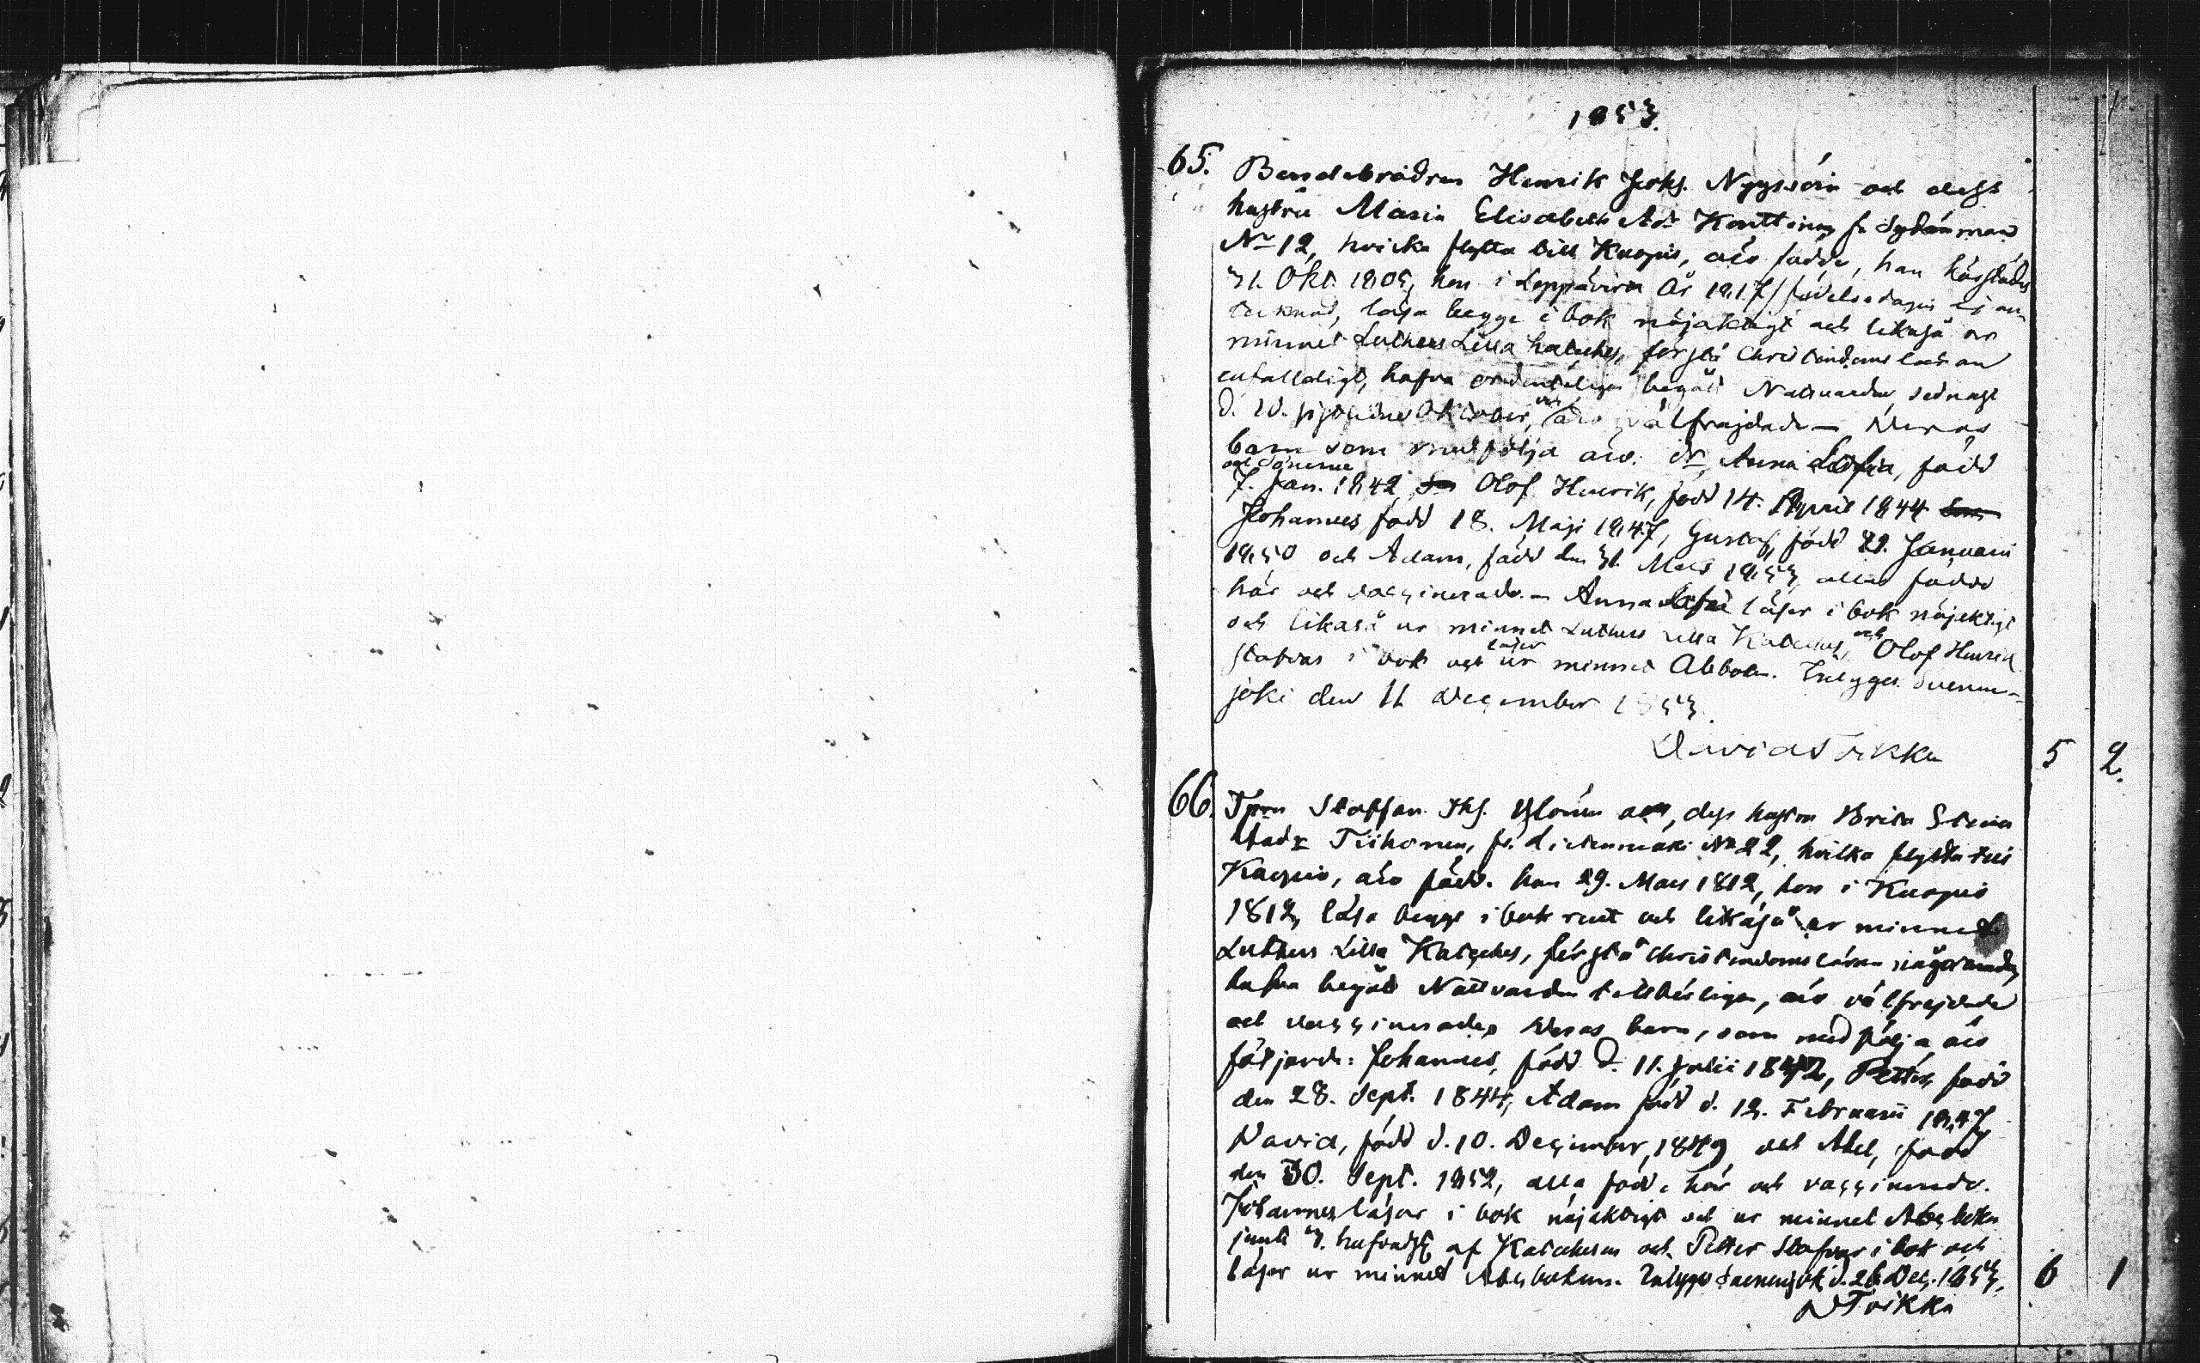 1853.
65. Bondebrodren Henrik Joh. Nyyssöin och dess
hustru Maria Elisabeth Adr Konttinen fr Sydänmaa
No 12, hvilka flytta till Kuopio, äro födde, han härstädes
31. Okt. 1805, hon i Leppävirta År 1817/födelsedagen ej an-
tecknad, läsa begge i bok nöjaktigt och likaså ur
minnet Luthers Lilla Kateches, förstå Christendomsläran
enfaldigt, hafva ordentligen begått Nattvarden, sednast
d. 10. sistledne Oktober, och äro välfrejdade — Deras
barn som medfölja äro: dr Anna Sofia, född
7. Jan. 1842, och sönerne Olof Henrik, född 14. April 1844
Johannes född 18. Maji 1847, Gustaf, född 29. Januarii
1850 och Adam, född den 31. Mars 1853, alla födde
här och vaccinerade. — Anna Sofia läser i bok nöjaktigt
och likaså ur minnet Luthers Lilla Kateches, och Olof Henrik
stafvar i bok och läser ur minnet Abboken. Intygar Suonen-
joki den 11 December 1853.
David Toikka 5 2.
66. Torp. Staffan Joh. och, dess hustru Brita Stina
Tiihonen, fr. Lietenmäki No 22, hvilka flytta till
Kuopio, äro födde. han 29. Mars 1812, hon i Kuopio
1812, läsa begge i bok rent och likaså ur minnet
Luthers Lilla Kateches, förstå Christendomsläran någorlunda,
hafva begått Nattvarden tillbörligen, äro välfrejdade
och vaccinerade. Deras barn, som medfölja äro
följande: Johannes, född d. 11. Julii 1842, Petter, född
den 28. Sept. 1844, Adam född d. 12. Februarii 1847
David, född d. 10. December, 1849 och Abel, född
den 30. Sept. 1852, alla födde här och vaccinerade.
Johannes läser i bok nöjaktigt och ur minnet Abcboken
jemte hufvudst af Katechesen och Petter Stafvar i bok och
läser ur minnet Abcboken. Intygar Suonenjoki d. 26 Dec. 1853. 6 1
D Toikka